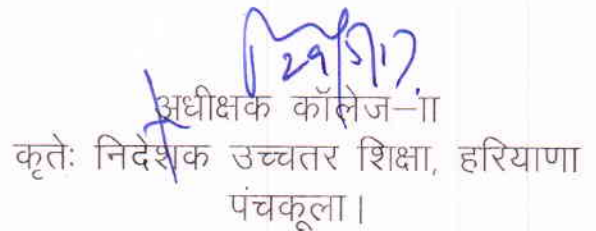 29/5/17
अधीक्षक कॉलेज–II
कृतेः निदेशक उच्चतर शिक्षा, हरियाणा
पंचकूला।